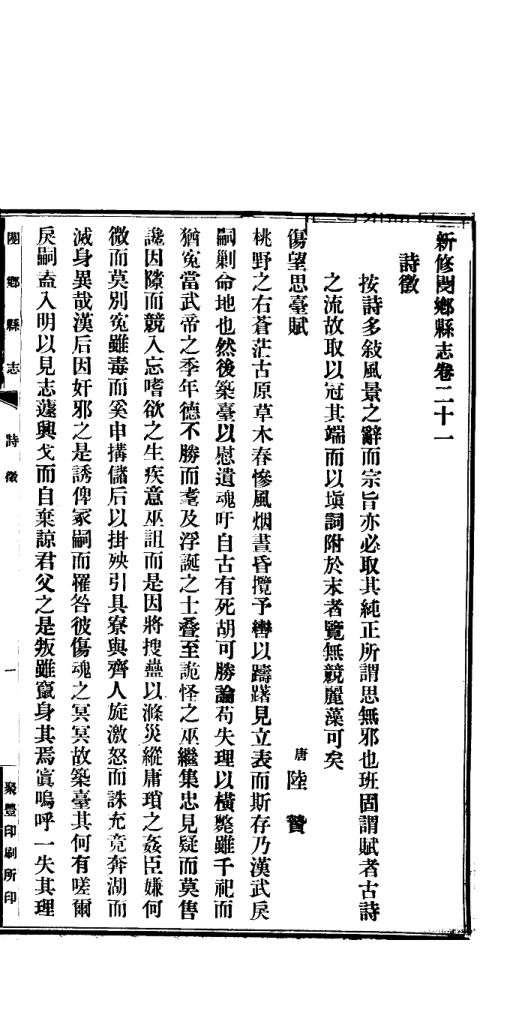 新修閿鄉縣志卷二十一
詩徵
按詩多敍風景之辭而宗旨亦必取其純正所謂思無邪也班固謂賦者古詩
之流故取以冠其端而以塡詞附於末者覽無競麗藻可矣
傷望思臺賦
唐 陸贄
桃野之右蒼茫古原草木春慘風烟晝昏攬予轡以躊躇見立表而斯存乃漢武戾
嗣剿命地也然後築臺以慰遺魂吁自古有死胡可勝論苟失理以橫斃雖千祀而
猶冤當武帝之季年德不勝而耄及浮誕之士叠至詭怪之巫繼集忠見疑而莫售
讒因隙而競入忘嗜欲之生疾意巫詛而是因將搜蠱以滌災縱庸瑣之姦臣嫌何
微而莫別冤雖毒而奚申搆儲后以掛殃引具寮與齊人旋激怒而誅充竟奔湖而
滅身異哉漢后因奸邪之是誘俾冢嗣而罹咎彼傷魂之冥冥故築臺其何有嗟爾
戾嗣盍入明以見志蘧興戈而自棄諒君父之是叛雖竄身其焉寘嗚呼一失其理
閿鄉縣志
詩徵
一
聚豐印刷所印